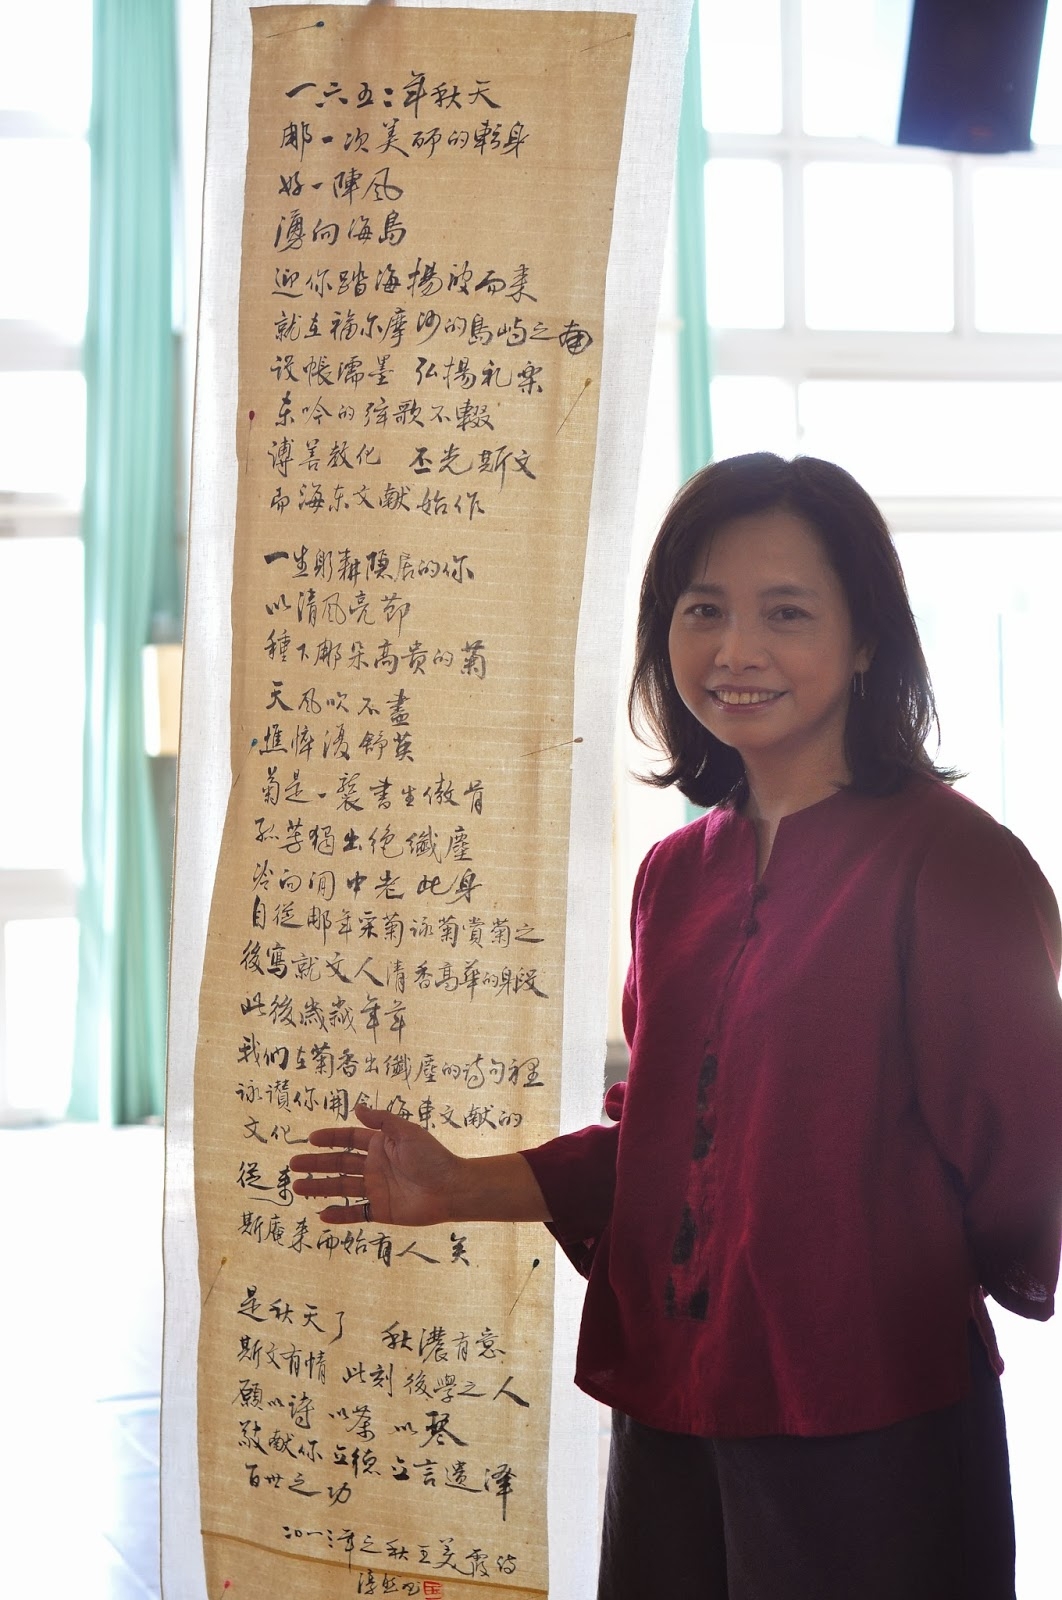 一六五二年秋天
那一次美丽的転身
好一陣风
湧向海島
迎你踏海揚波而来
就在福尔摩沙的島屿之南
设帐濡墨 弘揚礼樂
东吟的弦歌不輟
溥善教化 丕光斯文
而海东文献始作
一生躬耕隐居的你
以清风亮节
種下那朵高贵的菊
天风吹不盡
憔悴復舒英
菊是一襲書生傲骨
孤芳獨出绝纖塵
冷向闲中老此身
自従那年采菊詠菊賞菊之
後寫就文人清香高華的身段
此後歲歲年年
我們在菊香出纖塵的诗句裡
詠讚你開創海東文献的
文化
従来
斯庵来而始有人矣
是秋天了 秋濃有意
斯文有情 此刻後學之人
願以诗 以茶 以琴
敬献你立德立言遺澤
百世之功
二〇一三年之秋王美霞诗